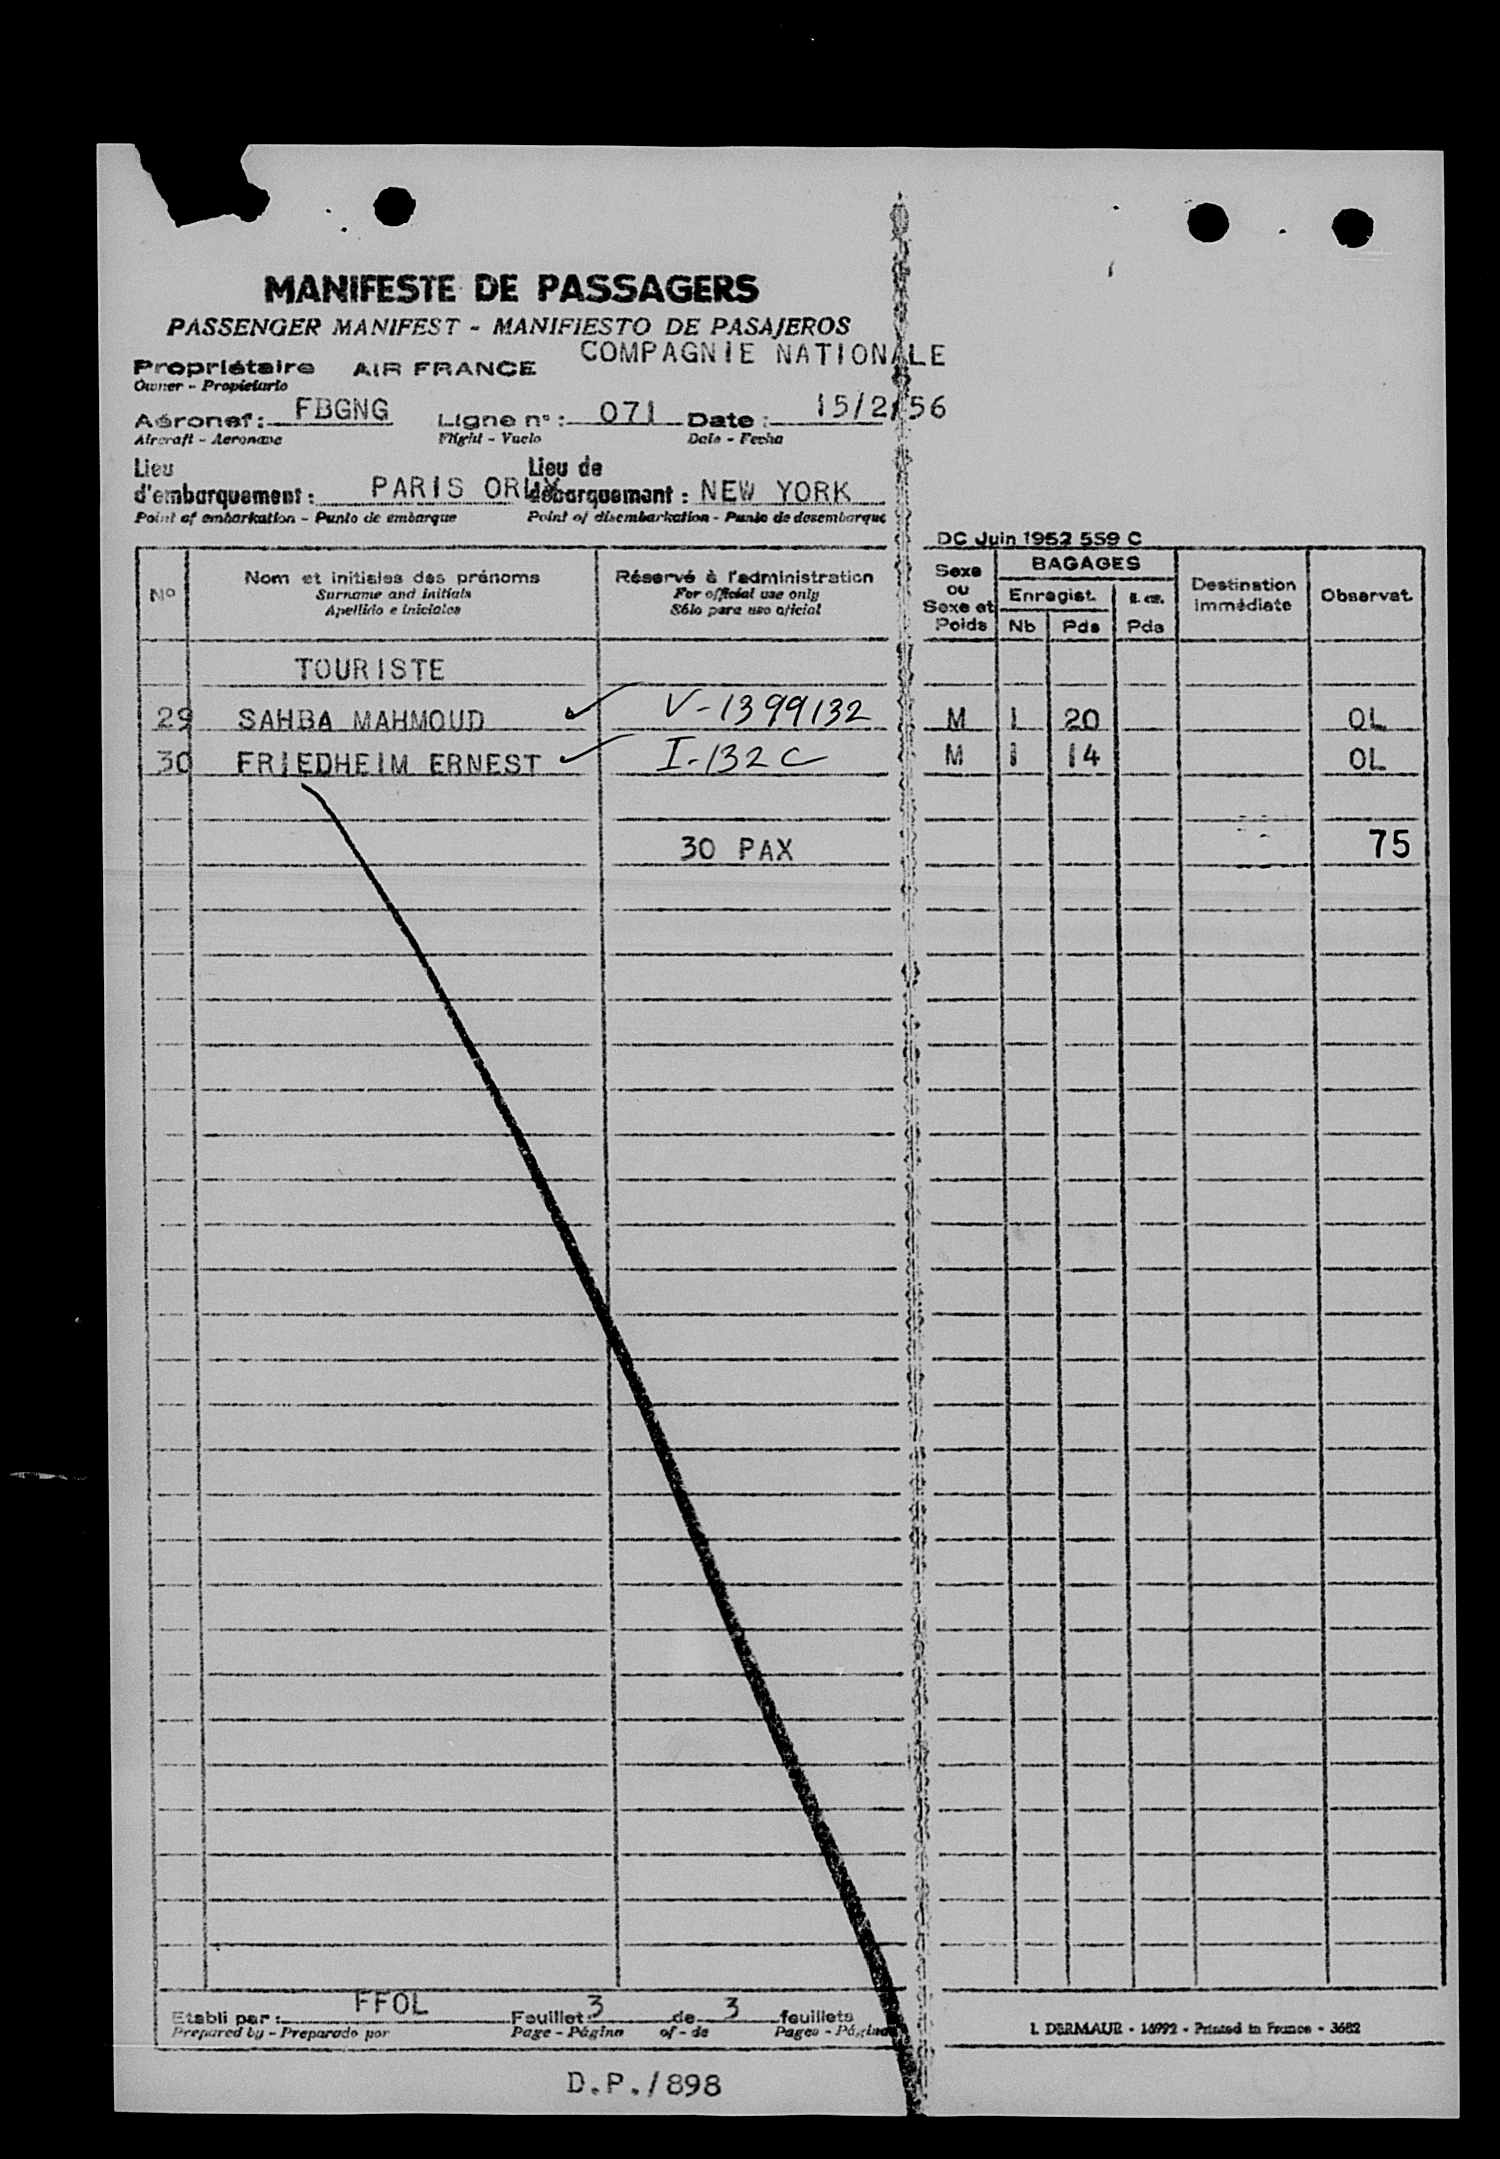 MANIFESTE DE PASSAGERS
PASSENGER MANIFEST - MANIFIESTO DE PASAJEROS
COMPAGNIE NATIONALE
Propriétaire AIR FRANCE
Owner - Propietario
Aéronef: FBGNG Ligne n°: 071 Date: 15/2/56
Aircraft - Aeronave Flight - Vuelo Date - Fecha
Lieu d'embarquement: PARIS ORLY Lieu de débarquement: NEW YORK
Point of embarkation - Punto de embarque Point of disembarkation - Punto de desembarque
DC Juin 1952 559 C
Nº Nom et initiales des prénoms Réservé à l'administration Sexe ou Sexe et Poids BAGAGES Destination immédiate Observat.
Surname and initials For official use only Enregist.
Apellido e iniciales Sólo para uso oficial Nb Pds Pds
TOURISTE
29 SAHBA MAHMOUD V-1399132 M 1 20 OL
30 FRIEDHEIM ERNEST I-132C M 1 14 OL
30 PAX 75
Etabli par: FFOL Feuillet 3 de 3 feuillets
Prepared by - Preparado por Page - Página of - de Pages - Páginas
I. DERMAUR - 16992 - Printed in France - 3682
D.P./898